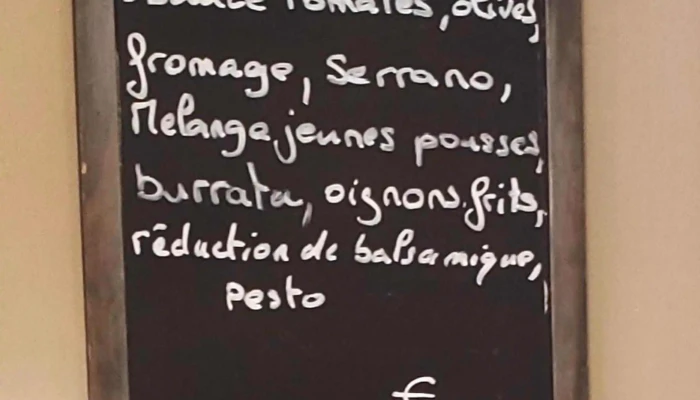 tomates, olives,
fromage, Serrano,
Melange jeunes pousses,
burrata, oignons frits,
réduction de balsamique,
Pesto
€